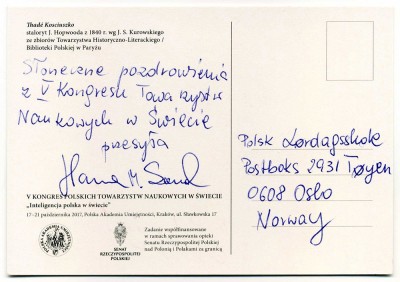 Thadé Kosciuszko
staloryt J. Hopwooda z 1840 r. wg J. S. Kurowskiego
ze zbiorów Towarzystwa Historyczno-Literackiego /
Biblioteki Polskiej w Paryżu
Słoneczne pozdrowienia
z V Kongresu Towarzystw
Naukowych w Świecie
przesyła
Hanna M.
V KONGRES POLSKICH TOWARZYSTW NAUKOWYCH W ŚWIECIE
„Inteligencja polska w świecie"
17–21 października 2017, Polska Akademia Umiejętności, Kraków, ul. Sławkowska 17
SENAT
RZECZYPOSPOLITEJ
POLSKIEJ
Zadanie współfinansowane
w ramach sprawowania opieki
Senatu Rzeczypospolitej Polskiej
nad Polonią i Polakami za granicą
Polsk Lørdagsskole
Postboks 2931 Tøyen
0608 Oslo
Norway